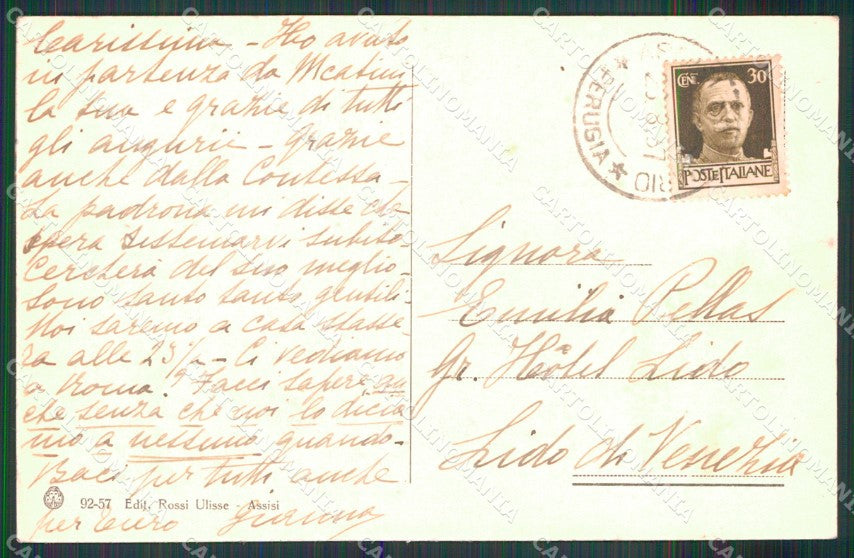 Carissima - Ho avuto
in partenza da Mcatini
la sua e grazie di tutti
gli augurii - Grazie
anche dalla Contessa -
La padrona mi disse che
spera sistemarvi subito.
Cercherà del suo meglio -
Sono tanto tanto gentili -
Noi saremo a casa stasse-
ra alle 23½ - Ci vediamo
a Roma? Facci sapere, an
che senza che noi lo dicia
mo a nessuno quando -
Baci per tutti anche
per Ciero Gianna
92-57 Edit. Rossi Ulisse - Assisi
PERUGIA
CENT. 30
POSTE ITALIANE
Signora
Emilia Pellas
Gr. Hôtel Lido
Lido di Venezia
CARTOLINOMANIA